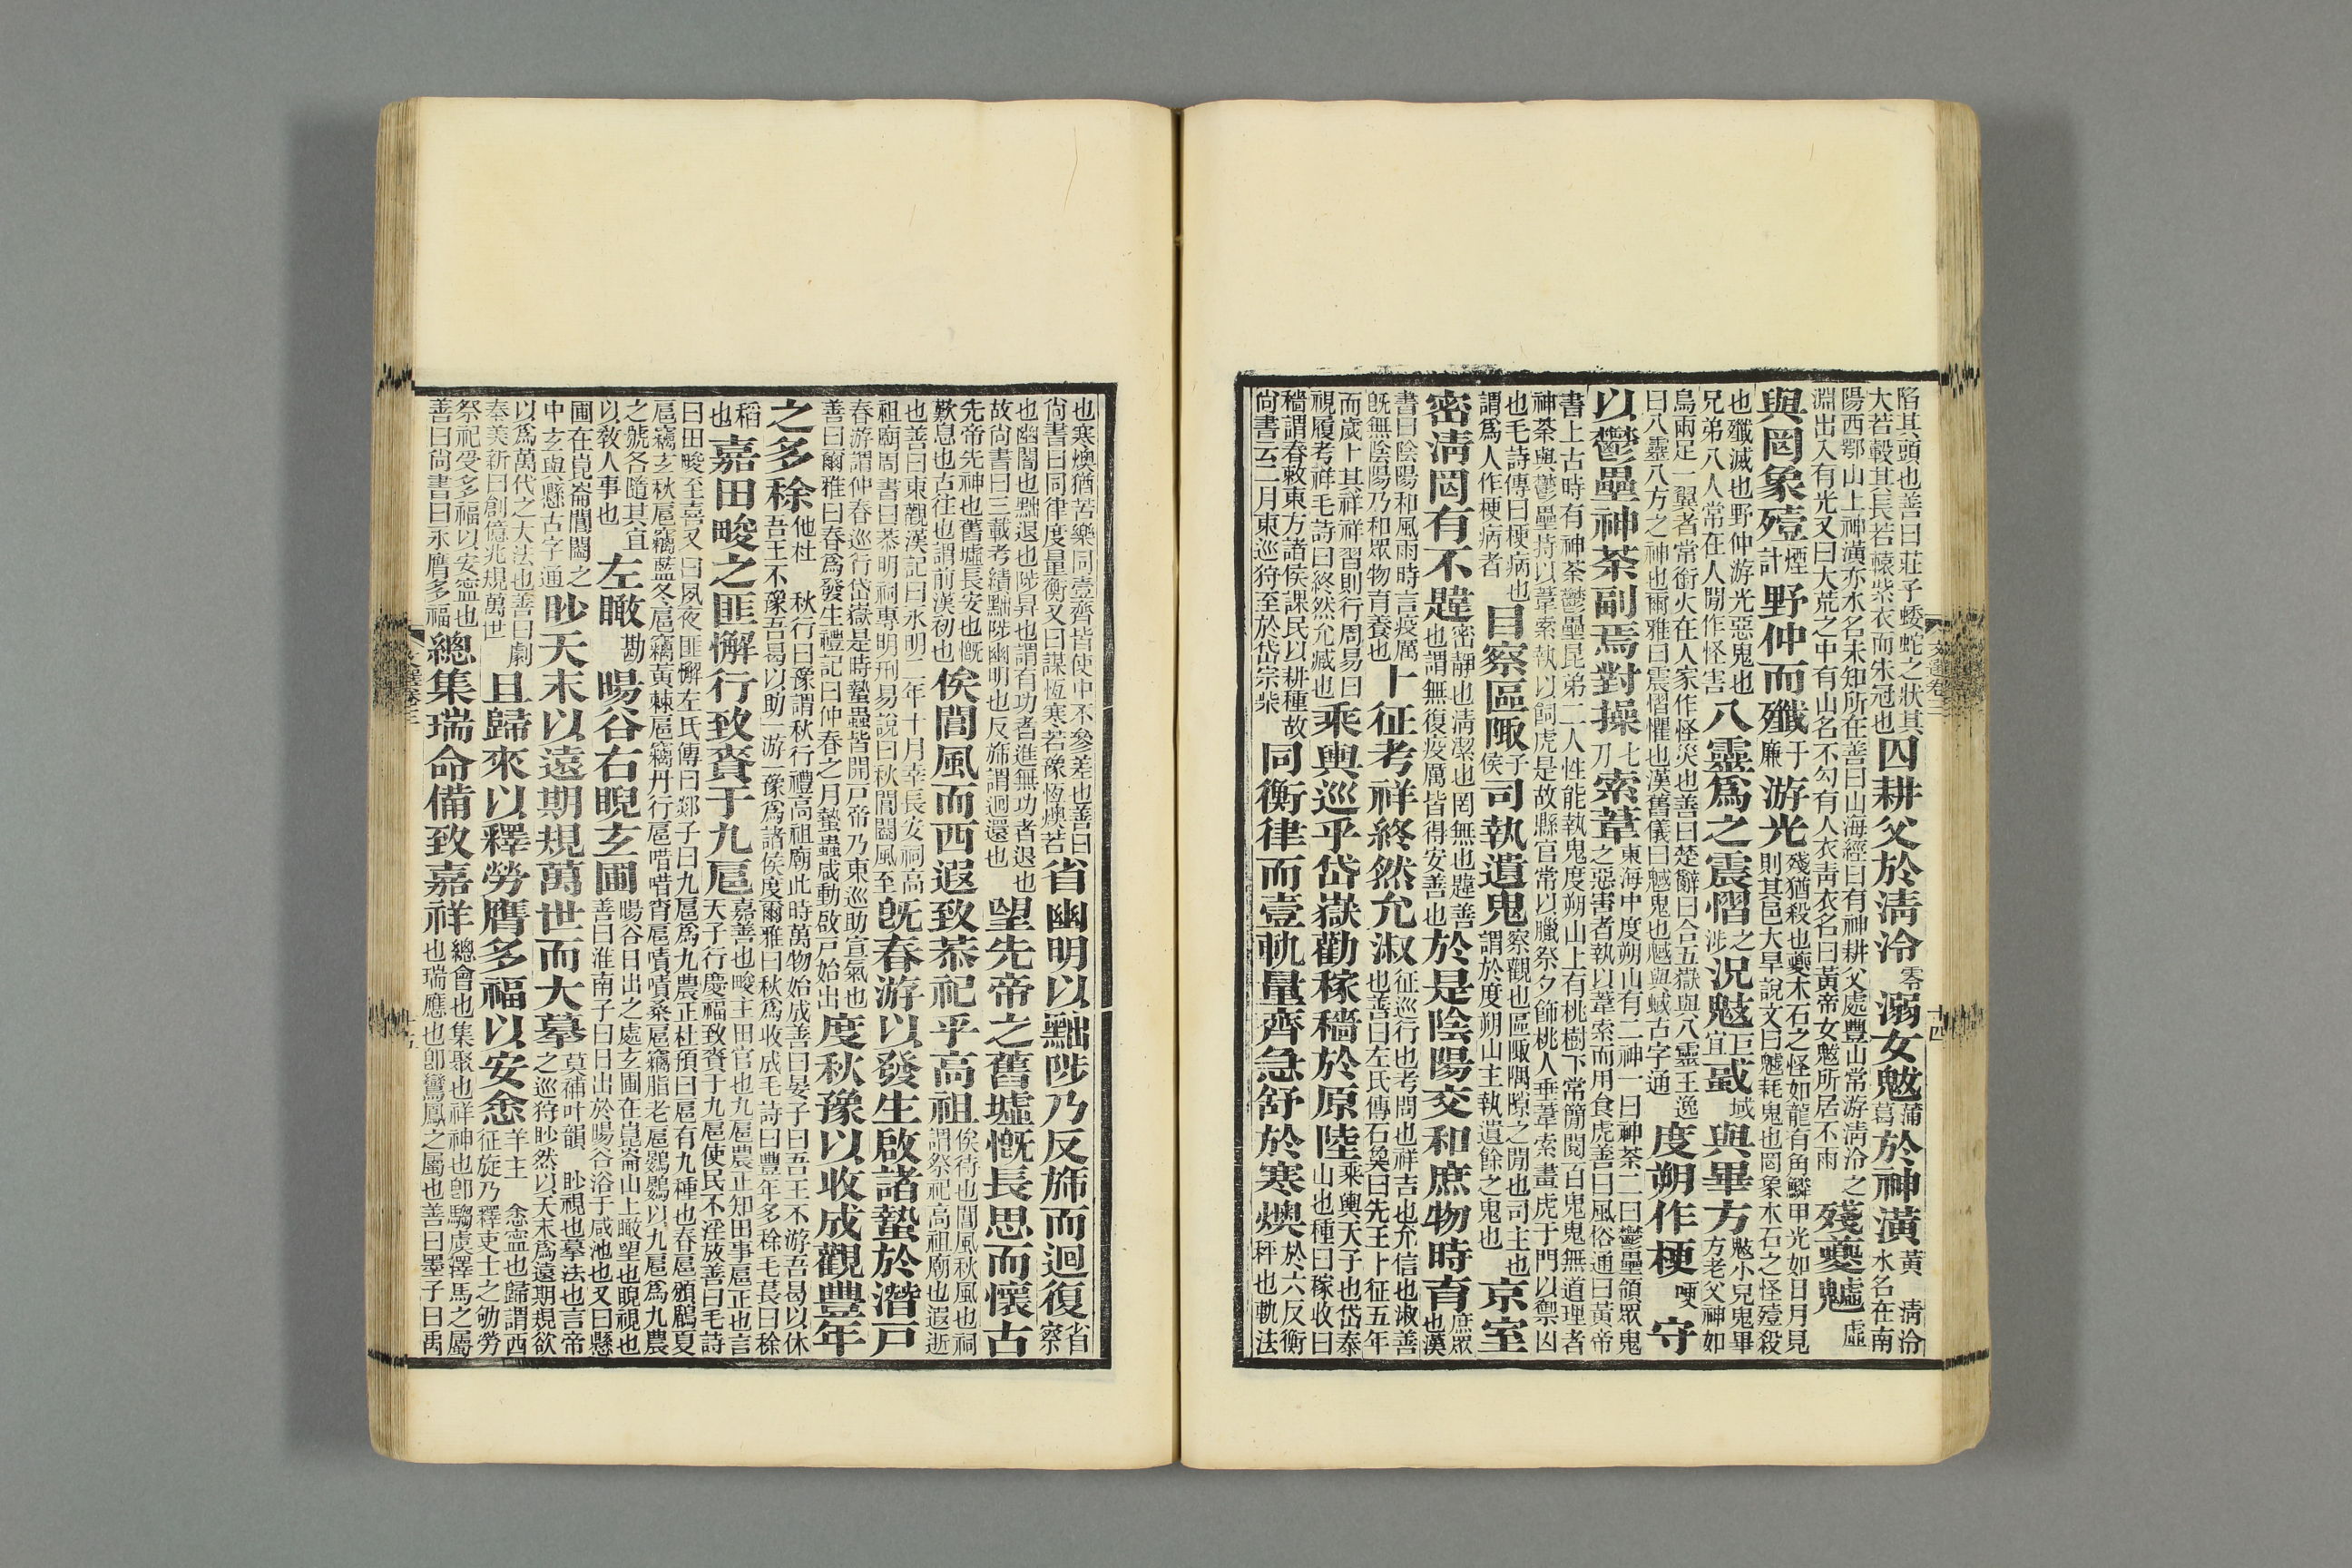 陷其頭也善曰莊子蜲蛇之狀其大若轂其長若轅紫衣而朱冠也囚耕父於淸泠零溺女魃蒲葛於神潢黃 淸泠水名在南
陽西鄂山上神潢亦水名未知所在善曰山海經曰有神耕父處豐山常游淸泠之淵出入有光又曰大荒之中有山名不勾有人衣靑衣名曰黃帝女魃所居不雨 殘夔魖虛
與罔象殪煙計野仲而殲子廉游光殘猶殺也夔木石之怪如龍有角鱗甲光如日月見則其邑大旱說文曰魖耗鬼也罔象木石之怪殪殺
也殲滅也野仲游光惡鬼也兄弟八人常在人閒作怪害八靈爲之震慴之涉況鬾巨宜蜮域與畢方鬾小兒鬼畢方老父神如
鳥兩足一翼者常銜火在人家作怪災也善曰楚辭曰合五嶽與八靈王逸曰八靈八方之神也爾雅曰震慴懼也漢舊儀曰魊鬼也魊與蜮古字通 度朔作梗哽守
以鬱壘神荼副焉對操七刀索葦東海中度朔山有二神一曰神荼二曰鬱壘領眾鬼之惡害者執以葦索而用食虎善曰風俗通曰黃帝
書上古時有神荼鬱壘昆弟二人性能執鬼度朔山上有桃樹下常簡閱百鬼鬼無道理者神荼與鬱壘持以葦索執以飼虎是故縣官常以臘祭夕飾桃人垂葦索畫虎于門以禦凶
也毛詩傳曰梗病也謂爲人作梗病者 目察區陬子侯司執遺鬼察觀也區陬隅隙之閒也司主也謂於度朔山主執遺餘之鬼也 京室
密淸罔有不韙密靜也淸潔也罔無也韙善也謂無復疫厲皆得安善也於是陰陽交和庶物時育庶眾也漢
書曰陰陽和風雨時言疫厲旣無陰陽乃和眾物育養也卜征考祥終然允淑征巡行也考問也祥吉也允信也淑善也善曰左氏傳石㚟曰先王卜征五年
而歲卜其祥祥習則行周易曰視履考祥毛詩曰終然允臧也乘輿巡乎岱嶽勸稼穡於原陸乘輿天子也岱泰山也種曰稼收曰
穡謂春敕東方諸侯課民以耕種故尚書云二月東巡狩至於岱宗柴同衡律而壹軌量齊急舒於寒燠於六反衡秤也軌法
文選卷三
十四
也寒燠猶苦樂同壹齊皆使中不參差也善曰尚書曰同律度量衡又曰謀恆寒若豫恆燠若省幽明以黜陟乃反斾而迴復省察
也幽闇也黜退也陟昇也謂有功者進無功者退也故尚書曰三載考績黜陟幽明也反斾謂迴還也 望先帝之舊墟慨長思而懷古
先帝先神也舊墟長安也慨歎息也古往也謂前漢初也俟閶風而西遐致恭祀乎高祖俟待也閶風秋風也祠謂祭祀高祖廟也遐逝
也善曰東觀漢記曰永明二年十月幸長安祠高祖廟周書曰恭明祠專明刑易說曰秋閶闔風至旣春游以發生啟諸蟄於潛戶
春游謂仲春巡行岱嶽是時蟄蟲皆開戶帝乃東巡助宣氣也善曰爾雅曰春爲發生禮記曰仲春之月蟄蟲咸動啟戶始出度秋豫以收成觀豐年
之多稌他杜 秋行曰豫謂秋行禮高祖廟此時萬物始成善曰晏子曰吾王不游吾曷以休吾王不豫吾曷以助一游一豫爲諸侯度爾雅曰秋爲收成毛詩曰豐年多稌毛萇曰稌
稻也嘉田畯之匪懈行致賚于九扈嘉善也畯主田官也九扈農正知田事扈正也言天子行慶福致賚于九扈使民不淫放善曰毛詩
曰田畯至喜又曰夙夜匪懈左氏傳曰郯子曰九扈爲九農正杜預曰扈有九種也春扈鳻鶞夏扈竊玄秋扈竊藍冬扈竊黃棘扈竊丹行扈唶唶宵扈嘖嘖桑扈竊脂老扈鷃鷃以九扈爲九農
之號各隨其宜以敎人事也 左瞰勘暘谷右睨玄圃暘谷日出之處玄圃在崑崙山上瞰望也睨視也善曰淮南子曰日出於暘谷浴于咸池也又曰懸
圃在崑崙閶闔之中玄與懸古字通眇天末以遠期規萬世而大摹莫補叶韻 眇視也摹法也言帝之巡狩眇然以天末爲遠期規欲
以爲萬代之大法也善曰劇秦美新曰創億兆規萬世 且歸來以釋勞膺多福以安悆羊主 悆寧也歸謂西征旋乃釋吏士之劬勞
祭祀受多福以安寧也善曰尚書曰永膺多福總集瑞命備致嘉祥總會也集聚也祥神也卽騶虞澤馬之屬也瑞應也卽鸞鳳之屬也善曰墨子曰禹